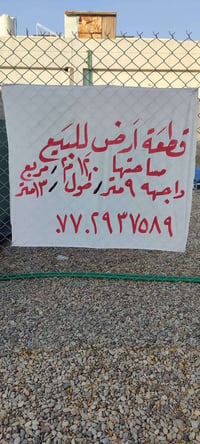 قطعة أرض للبيع
مساحتها ١٢٠ م٢ / مربع
واجهه ٩ متر / طول ١٣ متر
٠٧٧٠٢٩٣٧٥٨٩